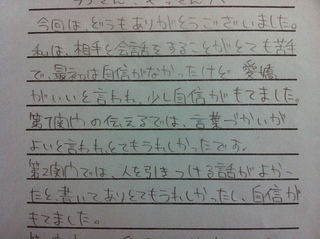 今回は、どうもありがとうございました。
私は、相手と会話をすることがとても苦手
で、最初は自信がなかったけど 愛嬌
がいいと言われ、少し自信がもてました。
第1関門の伝えるでは、言葉づかいが
よいと言われ、とてもうれしかったです。
第2関門では、人を引きつける話がよかっ
たと、書いてありとてもうれしかったし、自信が
もてました。